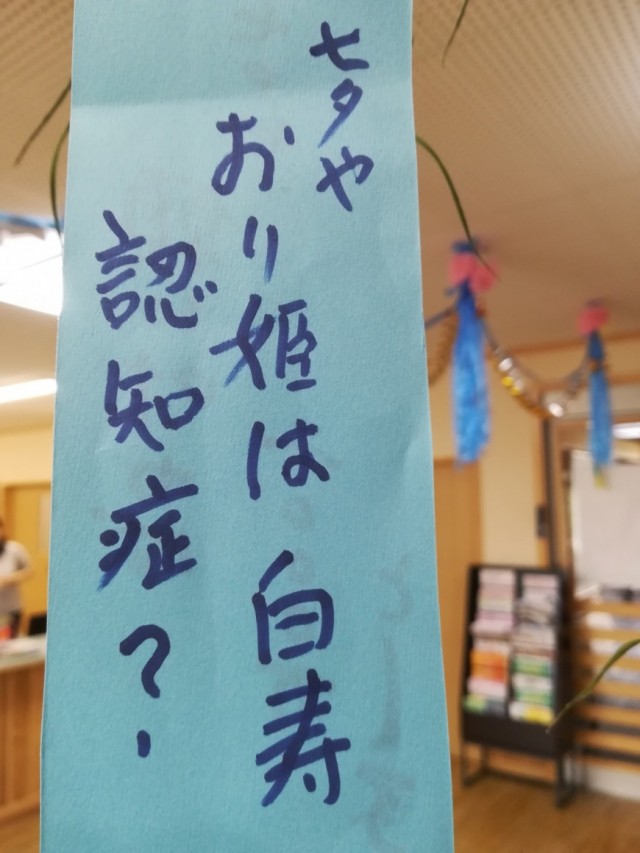 七夕や
おり姫は白寿
認知症?